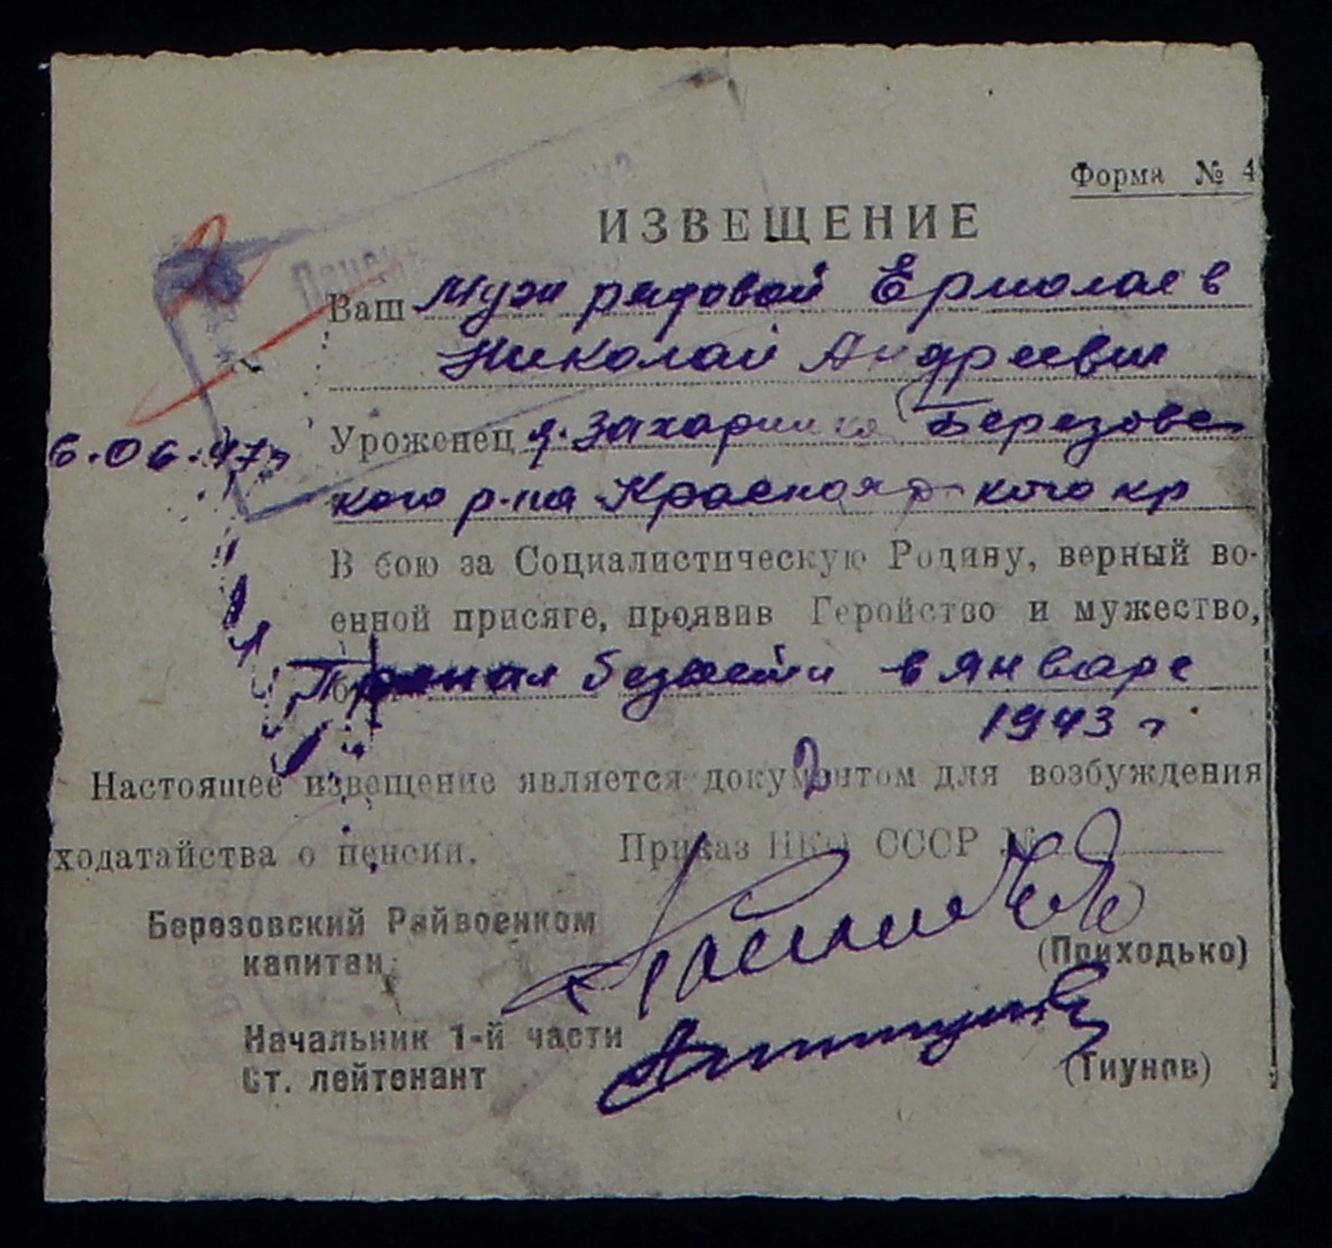 Форма № 4
ИЗВЕЩЕНИЕ
Ваш муж рядовой Ермолаев
Николай Андреевич
6.06.47г
Уроженец д. Захаринка Березовс
кого р-на Красноярского кр
В бою за Социалистическую Родину, верный во-
енной присяге, проявив Геройство и мужество,
Пропал безвести в январе
1943 г.
Настоящее извещение является документом для возбуждения
ходатайства о пенсии. Приказ НКО СССР №
Березовский Райвоенком
капитан (Приходько)
Начальник 1-й части
Ст. лейтенант (Тиунов)